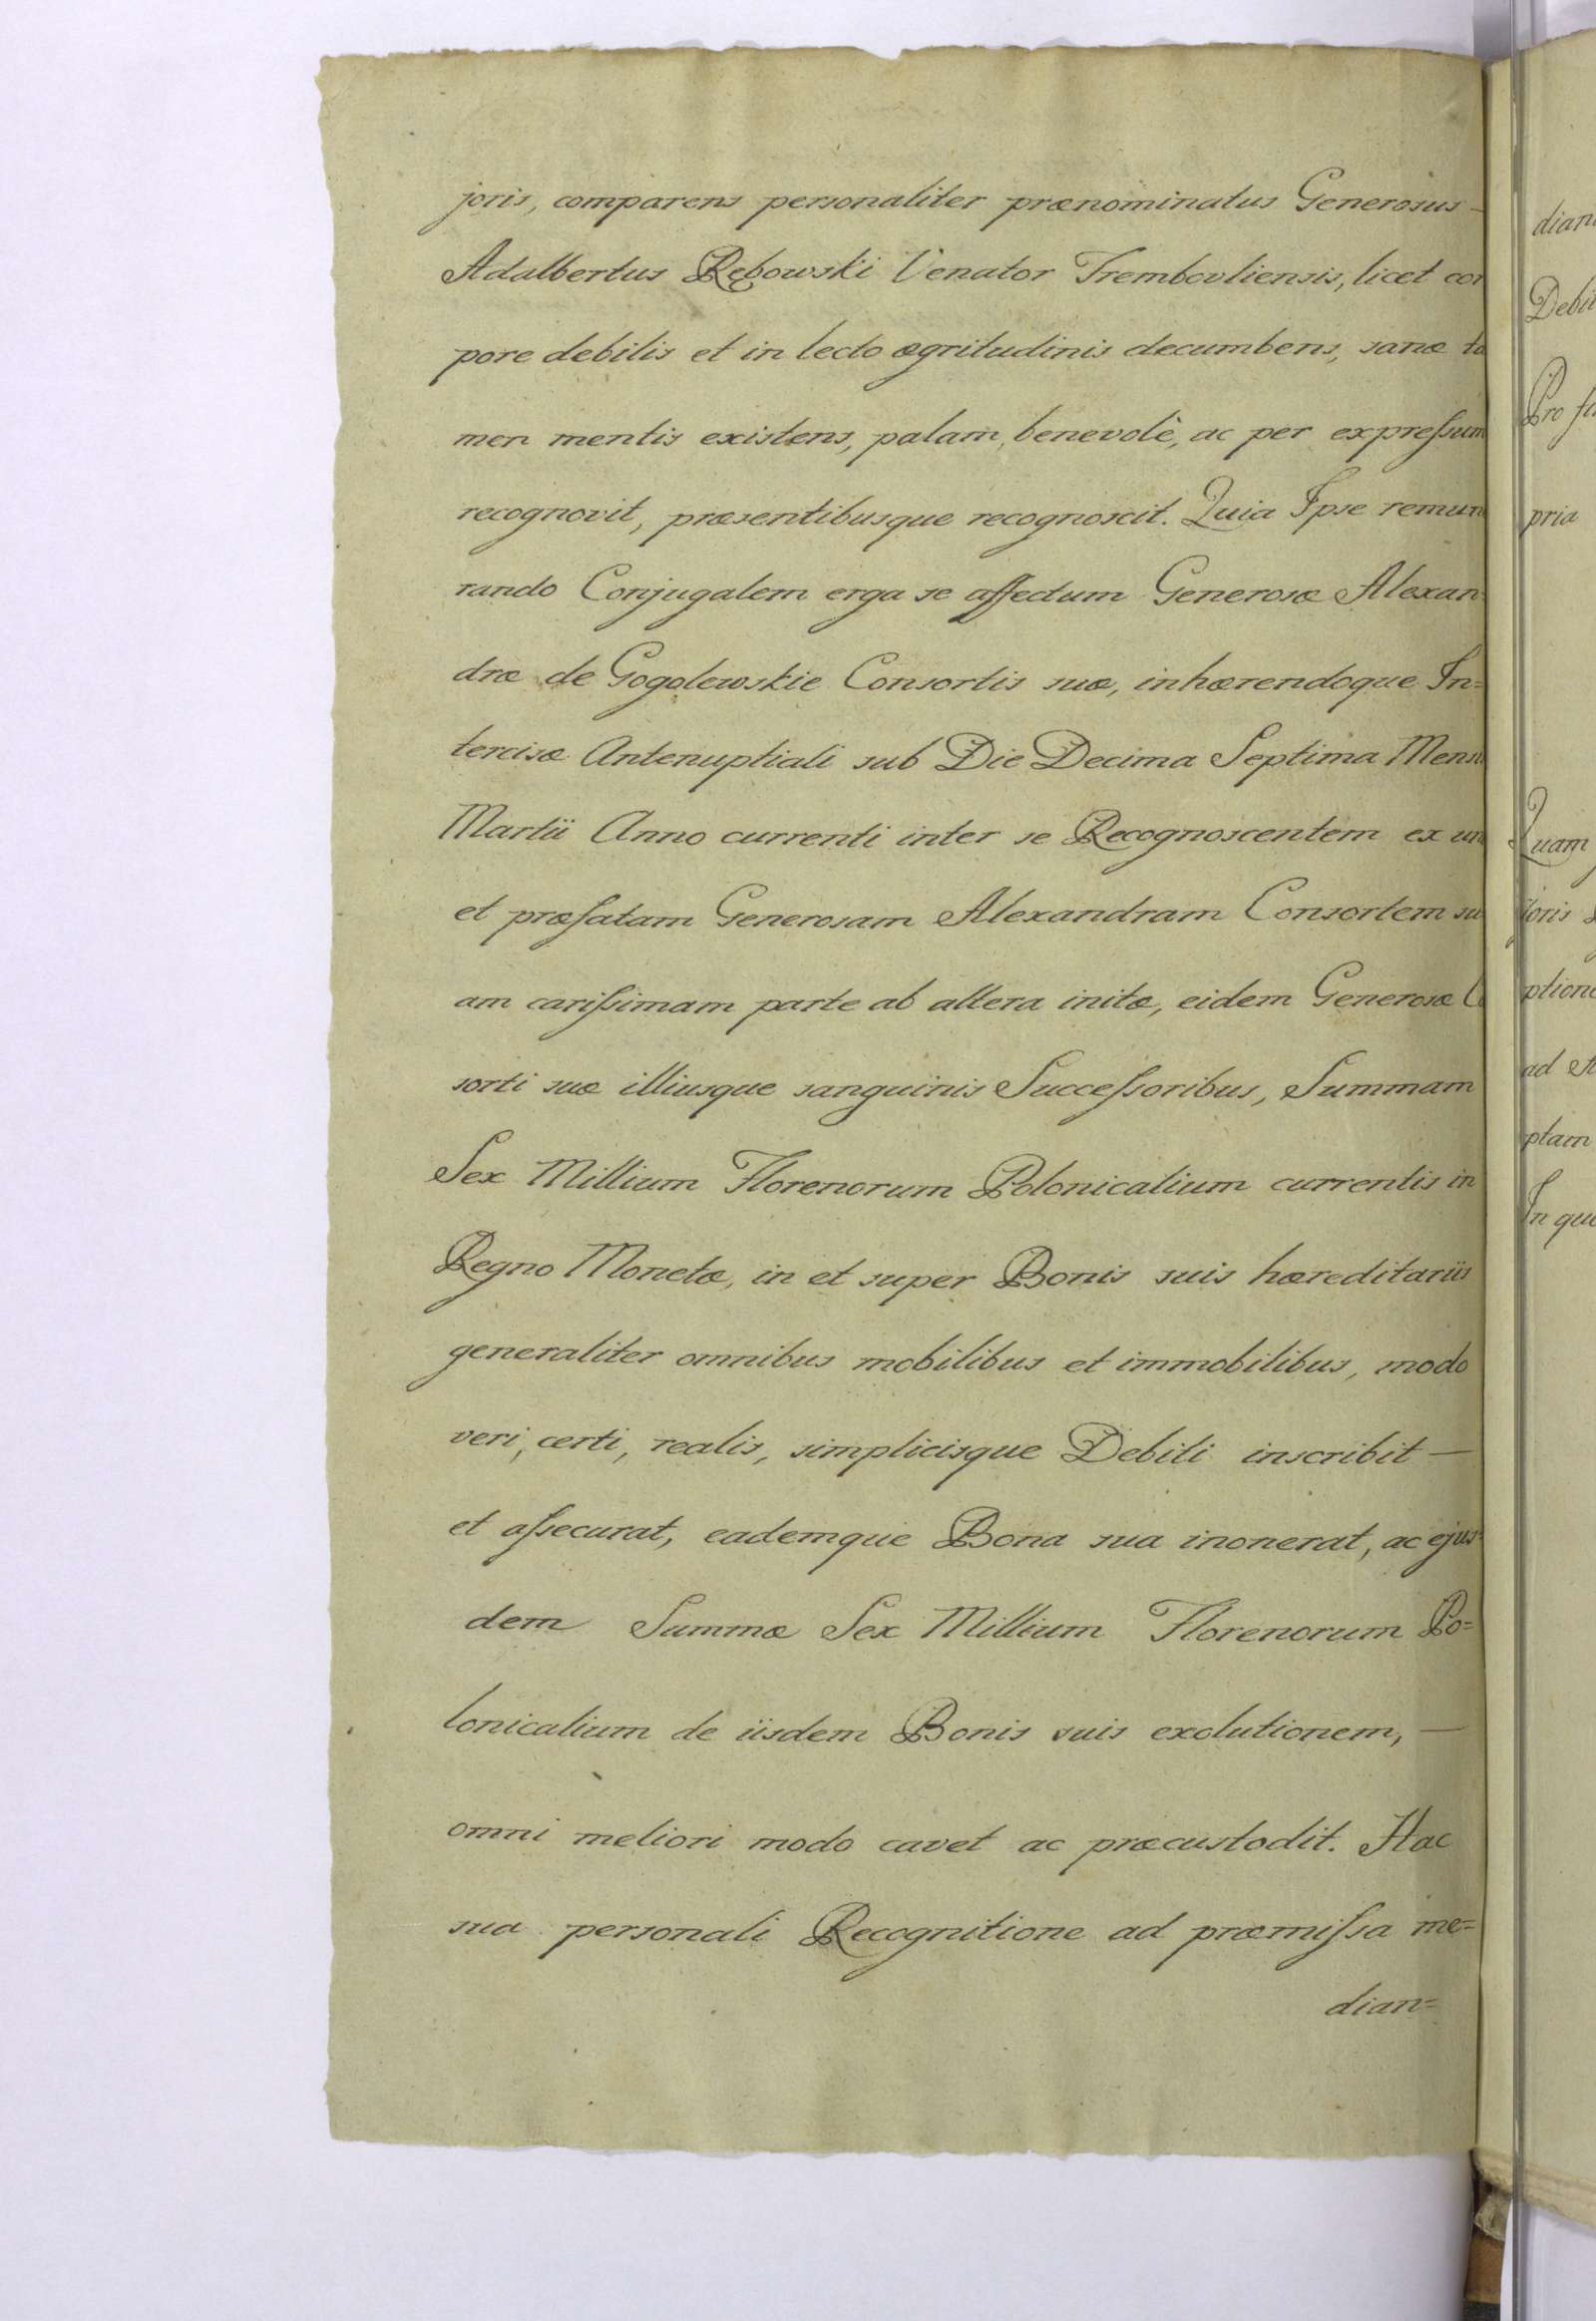 joris, comparens personaliter prænominatus Generosus –
Adalbertus Rębowski Venator Trembovliensis, licet cor
pore debilis et in lecto ægritudinis decumbens, sanæ ta
men mentis existens, palam, benevolè, ac per expreſsum
recognovit, præsentibusque recognoscit. Quia Ipse remun
rando Conjugalem erga se affectum Generosæ Alexan=
dræ de Gogolewskie Consortis suæ, inhærendoque In=
tercisæ Antenuptiali sub Die Decima Septima Mensi
Martii Anno currenti inter se Recognoscentem ex un
et præfatam Generosam Alexandram Consortem su
am cariſsimam parte ab altera initæ, eidem Generosæ Co
sorti suæ illiusque sanguinis Succeſsoribus, Summam
Sex Millium Florenorum Polonicalium currentis in
Regno Monetæ, in et super Bonis suis hæreditariis
generaliter omnibus mobilibus et immobilibus, modo
veri, certi, realis, simplicisque Debiti inscribit —
et aſsecurat, eademque Bona sua inonerat, ac ejus=
dem Summæ Sex Millium Florenorum Po=
lonicalium de iisdem Bonis suis exolutionem, —
omni meliori modo cavet ac præcustodit. Hac
sua personali Recognitione ad præmiſsa me=
dian=
dian
Debit
Pro
pria
Quam
joris
ptione
ad
ptam
In quo